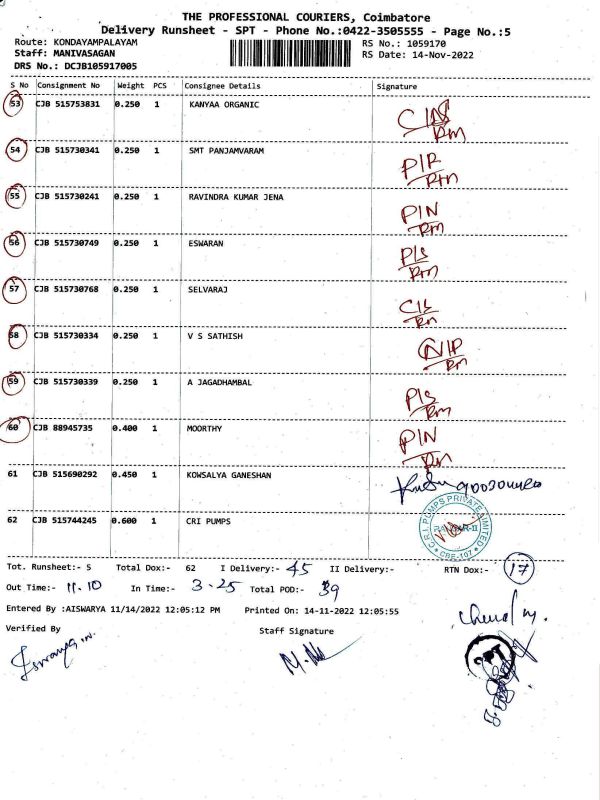 THE PROFESSIONAL COURIERS, Coimbatore
Delivery Runsheet - SPT - Phone No.:0422-3505555 - Page No.:5
Route: KONDAYAMPALAYAM RS No.: 1059170
Staff: MANIVASAGAN RS Date: 14-Nov-2022
DRS No.: DCJB105917005
S No Consignment No Weight PCS Consignee Details Signature
53 CJB 515753831 0.250 1 KANYAA ORGANIC
Rm
54 CJB 515730341 0.250 1 SMT PANJAMVARAM P/R
Rtn
55 CJB 515730241 0.250 1 RAVINDRA KUMAR JENA P/N
Rm
56 CJB 515730749 0.250 1 ESWARAN P/S
Rm
57 CJB 515730768 0.250 1 SELVARAJ C/S
Rn
58 CJB 515730334 0.250 1 V S SATHISH
Rn
59 CJB 515730339 0.250 1 A JAGADHAMBAL P/S
Rm
60 CJB 88945735 0.400 1 MOORTHY P/N
Rn
61 CJB 515690292 0.450 1 KOWSALYA GANESHAN
62 CJB 515744245 0.600 1 CRI PUMPS C.R.I. PUMPS PRIVATE LIMITED CBE-107
Tot. Runsheet:- 5 Total Dox:- 62 I Delivery:- 45 II Delivery:- RTN Dox:- 17
Out Time:- 11.10 In Time:- 3-25 Total POD:- 39
Entered By :AISWARYA 11/14/2022 12:05:12 PM Printed On: 14-11-2022 12:05:55
Verified By Staff Signature
SPT